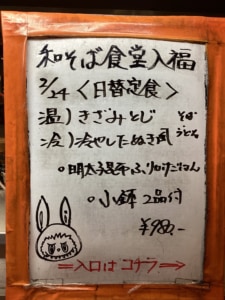 和そば食堂入福
2/24〈日替定食〉
温)きざみとじ
そば
うどん
冷)冷やしたぬき風
○明太昆布ふりかけごはん
○小鉢2品付
¥980.-
⇒入口はコチラ→